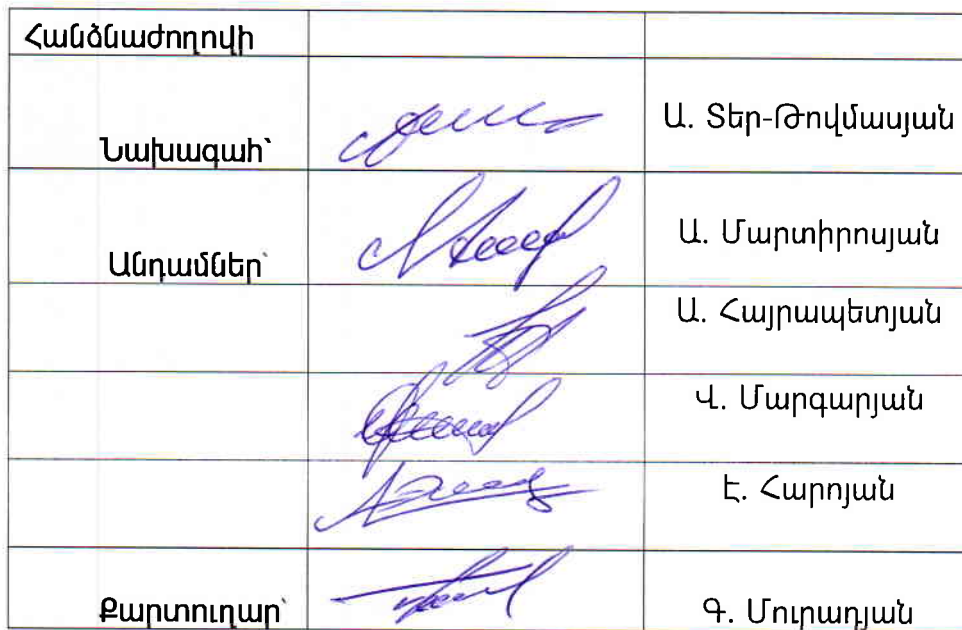 Հանձնաժողովի
Նախագահ՝ Ա. Տեր-Թովմասյան
Անդամներ՝ Ա. Մարտիրոսյան
Ա. Հայրապետյան
Վ. Մարգարյան
Է. Հարոյան
Քարտուղար՝ Գ. Մուրադյան